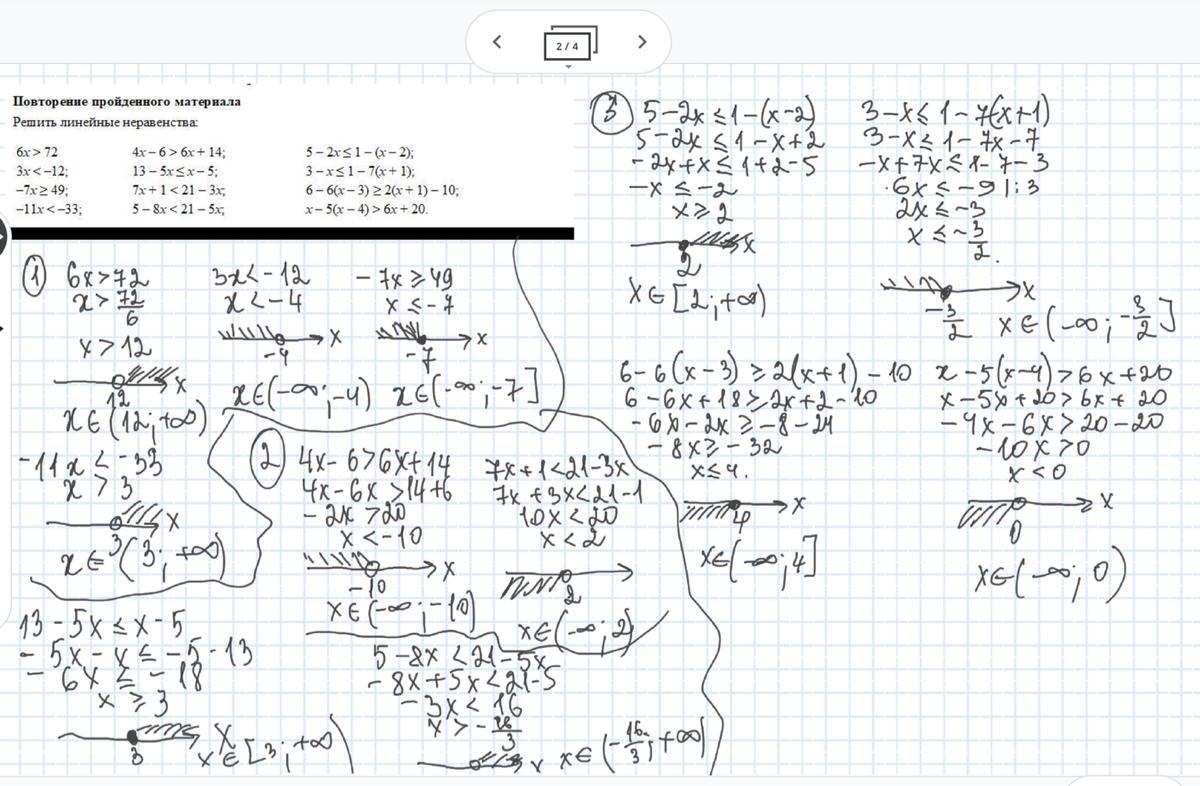 2 / 4
Повторение пройденного материала
Решить линейные неравенства:
6x > 72 4x – 6 > 6x + 14; 5 – 2x ≤ 1 – (x – 2);
3x < –12; 13 – 5x ≤ x – 5; 3 – x ≤ 1 – 7(x + 1);
–7x ≥ 49; 7x + 1 < 21 – 3x; 6 – 6(x – 3) ≥ 2(x + 1) – 10;
–11x < –33; 5 – 8x < 21 – 5x; x – 5(x – 4) > 6x + 20.
1
6x > 72
x > 72/6
x > 12
12 x
x ∈ (12; +∞)
3x < -12
x < -4
-4 x
x ∈ (-∞; -4)
-7x ≥ 49
x ≤ -7
-7 x
x ∈ (-∞; -7]
-11x < -33
x > 3
3 x
x ∈ (3; +∞)
2
4x - 6 > 6x + 14
4x - 6x > 14 + 6
-2x > 20
x < -10
-10 x
x ∈ (-∞; -10)
7x + 1 < 21 - 3x
7x + 3x < 21 - 1
10x < 20
x < 2
2
x ∈ (-∞; 2)
13 - 5x ≤ x - 5
-5x - x ≤ -5 - 13
-6x ≤ -18
x ≥ 3
3 x
x ∈ [3; +∞)
5 - 8x < 21 - 5x
-8x + 5x < 21 - 5
-3x < 16
x > -16/3
x
x ∈ (-16/3; +∞)
3
5 - 2x ≤ 1 - (x - 2)
5 - 2x ≤ 1 - x + 2
-2x + x ≤ 1 + 2 - 5
-x ≤ -2
x ≥ 2
2 x
x ∈ [2; +∞)
3 - x ≤ 1 - 7(x + 1)
3 - x ≤ 1 - 7x - 7
-x + 7x ≤ 1 - 7 - 3
6x ≤ -9 | : 3
2x ≤ -3
x ≤ -3/2.
-3/2 x
x ∈ (-∞; -3/2]
6 - 6(x - 3) ≥ 2(x + 1) - 10
6 - 6x + 18 ≥ 2x + 2 - 10
-6x - 2x ≥ -8 - 24
-8x ≥ -32
x ≤ 4.
4 x
x ∈ (-∞; 4]
x - 5(x - 4) > 6x + 20
x - 5x + 20 > 6x + 20
-4x - 6x > 20 - 20
-10x > 0
x < 0
0 x
x ∈ (-∞; 0)